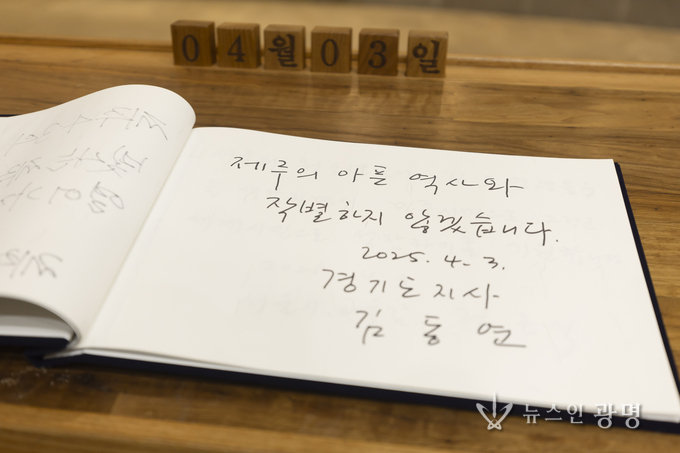 04월03일
제주의 아픈 역사와
작별하지 않겠습니다.
2025. 4. 3.
경기도지사
김동연
뉴스인광명